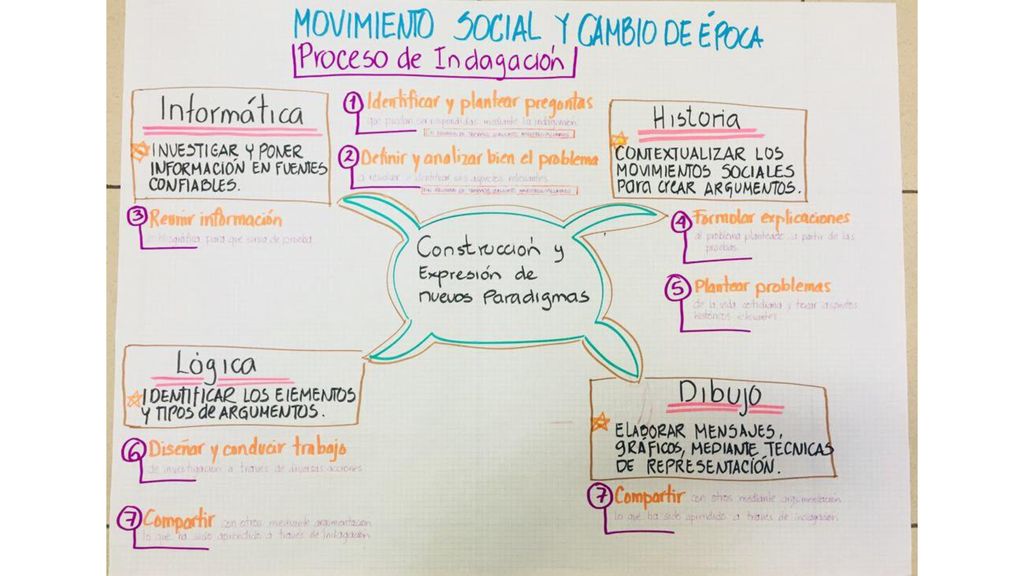 MOVIMIENTO SOCIAL Y CAMBIO DE ÉPOCA
Proceso de Indagación
Informática
INVESTIGAR Y PONER
INFORMACIÓN EN FUENTES
CONFIABLES.
1 Identificar y plantear preguntas
que puedan ser respondidas mediante la indagación
2 Definir y analizar bien el problema
a resolver e identificar sus aspectos relevantes
Historia
CONTEXTUALIZAR LOS
MOVIMIENTOS SOCIALES
Para crear ARGUMENTOS.
3 Reunir información
bibliográfica para que sirva de prueba
4 Formular explicaciones
al problema planteado a partir de las
pruebas
5 Plantear problemas
de la vida cotidiana y
históricos relevantes
Construcción y
Expresión de
nuevos Paradigmas
Lógica
IDENTIFICAR LOS ElEMENTOS
Y TIPOS de ARGUMENTOS.
6 Diseñar y conducir trabajo
de investigación a través de diversas acciones
7 Compartir con otros mediante argumentación
lo que ha sido aprendido a través de Indagación
Dibujo
ELABORAR MENSAJES,
GRÁFICOS, MEDIANTE TECNICAS
DE REPRESENTACIÓN.
7 Compartir con otros mediante argumentación
lo que ha sido aprendido a través de indagación